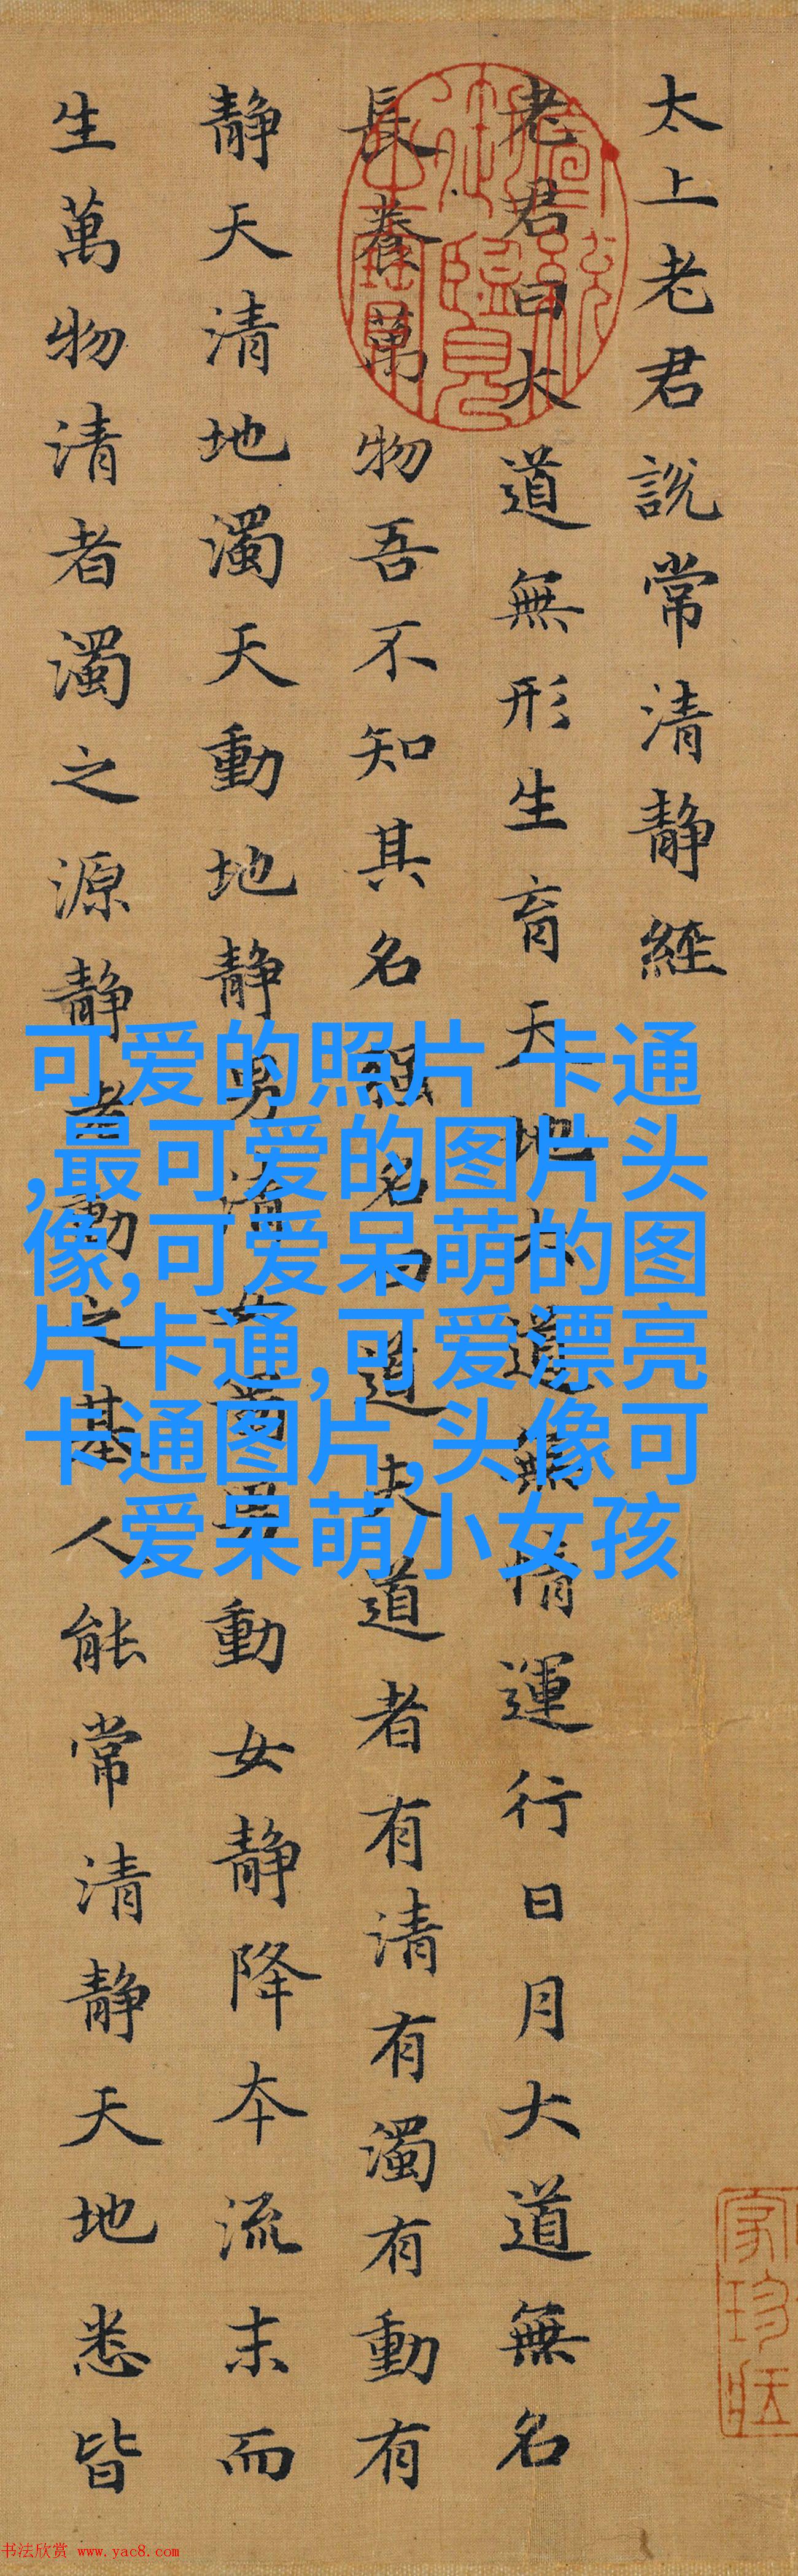 太上老君說常清静經
老君曰大道無形生育天地大道無情運行日月大道無名
長養萬物吾不知其名强名曰道夫道者有清有濁有動有
静天清地濁天動地静男清女濁男動女静降本流末而
生萬物清者濁之源静者動之基人能常清静天地悉皆
可爱的照片 卡通
,最可爱的图片头
像,可爱呆萌的图
片卡通,可爱漂亮
卡通图片,头像可
爱呆萌小女孩
宣統御覽之寶
书法欣赏 www.yac8.com